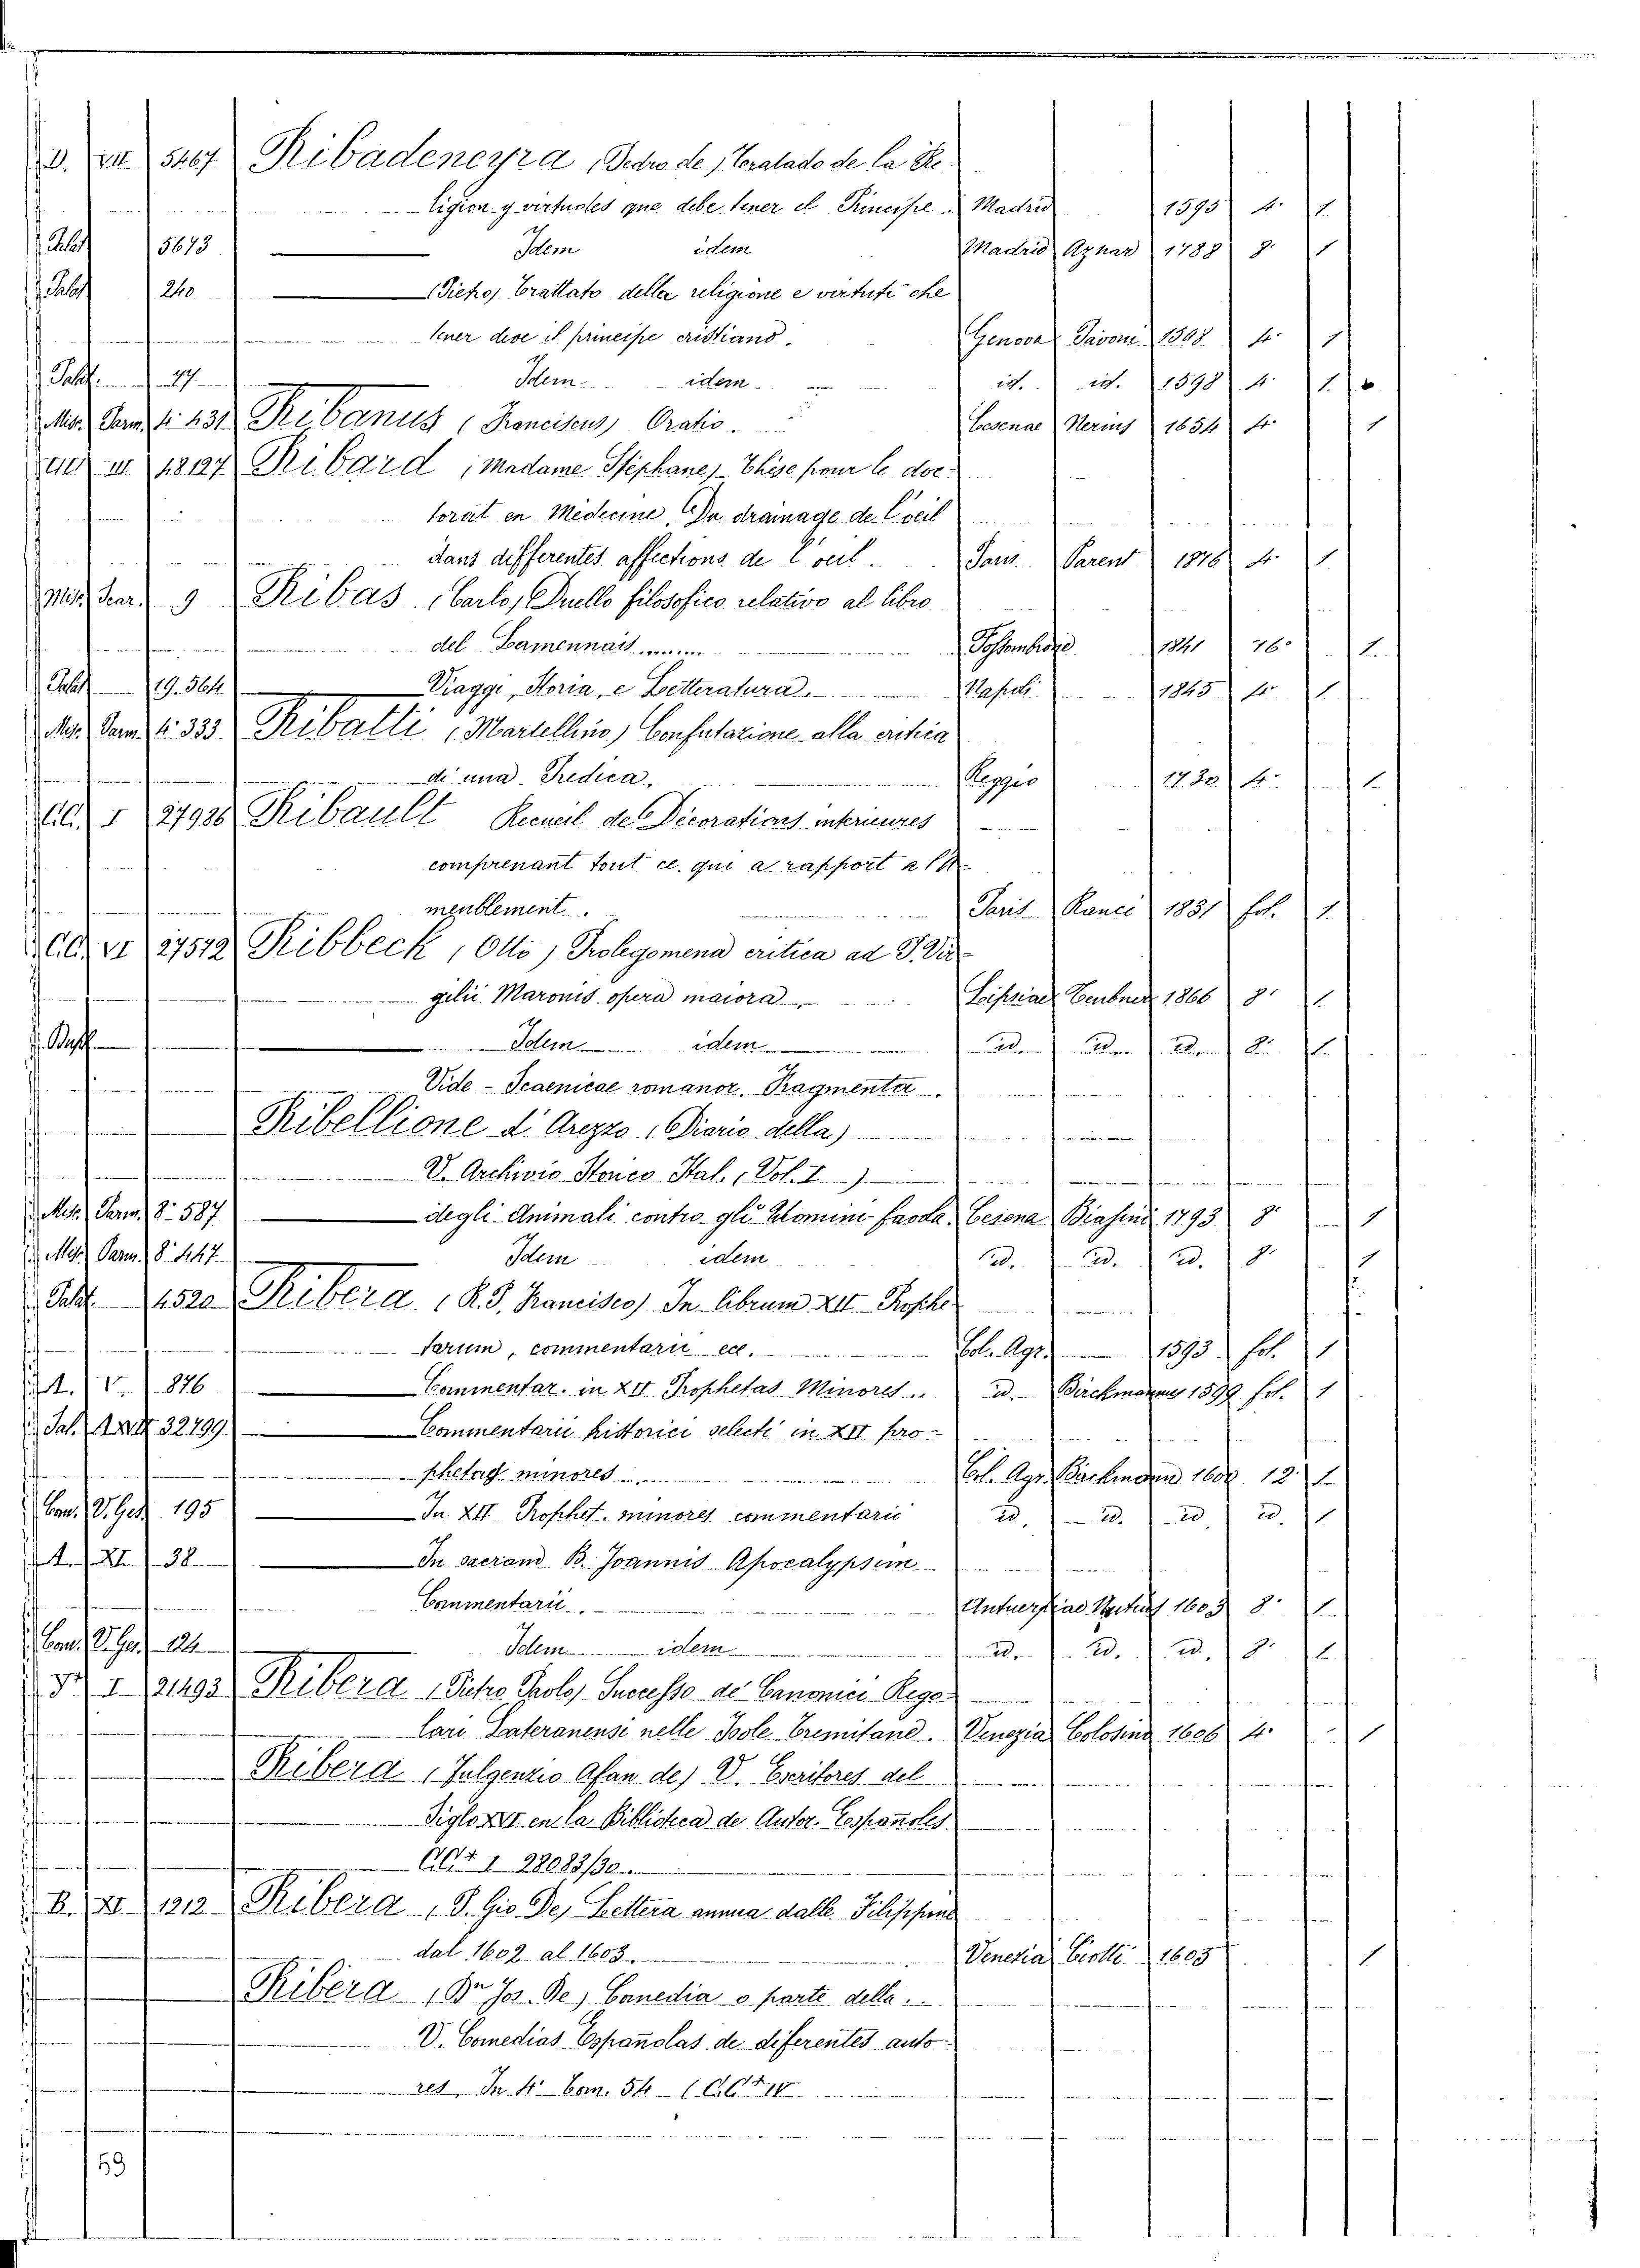 D. XII. 5467 Ribadeneyra, Pedro de, Tratado de la Re-
ligion y virtudes que debe tener el Principe. Madrid 1595 4. 1.
Palat 5673 Idem idem Madrid Aznar 1788 8. 1
Palat 240 (Pietro) Trattato della religione e virtuti che
tener deve il principe cristiano. Genova Pavoni 1598 4. 1
Palat. 77 Idem idem id. id. 1598 4. 1.
Mis. Parm. 4. 431 Ribanus (Franciscus) Oratio. Cesenae Nerius 1654 4. 1
III 18127 Ribard, Madame Stephane, Thèse pour le doc-
torat en Médecine. Du drainage de l'oeil
dans differentes affections de l'oeil. Paris Parent 1876 4. 1
9 Ribas (Carlo) Duello filosofico relativo al libro
del Lamennais Fossombrone 1841 16° 1.
Palat 19. 364 Viaggi, Storia, e Letteratura. Napoli 1845 4. 1.
Mis. Parm. 4. 333 Ribatti (Martellino) Confutazione alla critica
di una Predica. Reggio 1730 4. 1
I 27936 Ribault. Recueil de Décorations interieures
comprenant tout ce qui a rapport a l'A-
meublement. Paris 1831 fol. 1.
VI 27512 Ribbeck, Otto, Prolegomena critica ad P. Vir-
gilii Maronis opera maiora Lipsiae Teubner 1866 8. 1.
Idem idem 8. 1.
Vide - Scaenicae romanor. Fragmenta.
Ribellione d'Arezzo (Diario della)
V. Archivio Storico Ital. (Vol. I.)
Mis. Parm. 8. 587 degli Animali contro gli Uomini favola. Cesena Biasini 1793 8. 1
Mis. Parm. 8. 447 Idem idem id. id. id. 8. 1
Palat 4520 Ribera, (R. P. Francisco) In librum XII Prophe-
tarum, commentarii ecc. Col. Agr. 1593 fol. 1
A. V. 876 Commentar. in XII Prophetas Minores. id. Birckmannus 1599 fol. 1
Sal. 32799 Commentarii historici selecti in XII pro-
phetas minores Col. Agr. 12. 1
195 In XII Prophet. minores commentarii id. id. id. id. 1
A. XI. 38 In sacrand B. Joannis Apocalypsim
Commentarii. Antuerpiae 1603 8. 1.
124 Idem idem id. id. id. 8. 1
I 21493 Ribera (Pietro Paolo) Successo de' Canonici Rego-
lari Lateranensi nelle Isole Tremitane. Venezia Colosino 1606 4. 1
Ribera (Fulgenzio Afan de) V. Escritores del
Siglo XVI en la Biblioteca de Autor. Españoles
I 28083/30.
B. XI. 1212 Ribera (P. Gio De) Lettera annua dalle Filippine
dal 1602 al 1603. Venetia Ciotti 1605 1
Ribera (Dn Jos. De) Comedia o parte della.
V. Comedias Españolas de diferentes auto-
res. In 4° Tom. 54
59